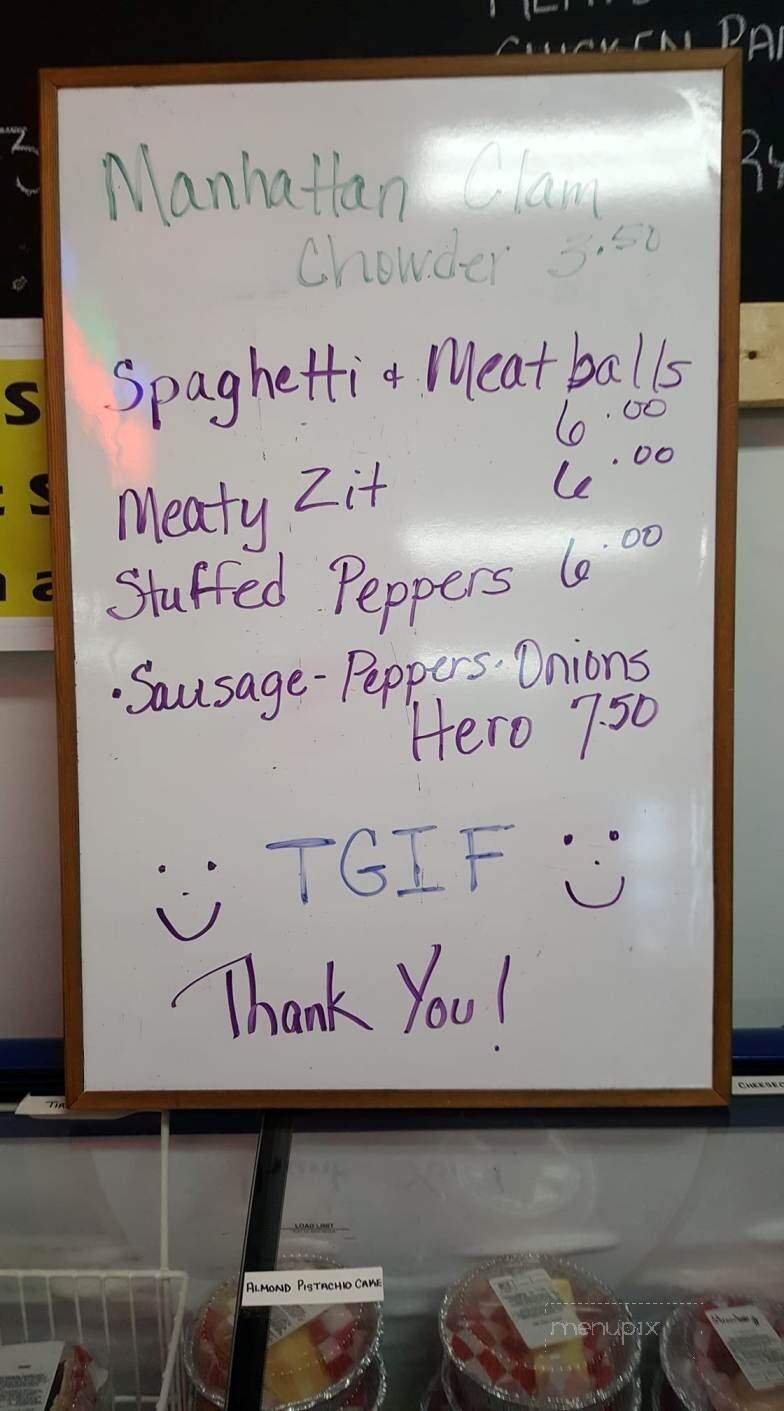 CHICKEN PAR
Manhattan Clam
Chowder 3.50
Spaghetti & Meatballs
6.00
Meaty Zit 6.00
Stuffed Peppers 6.00
·Sausage-Peppers·Onions
Hero 7.50
TGIF
Thank You!
CHEESEC
LOAD LIMIT
ALMOND PISTACHIO CAKE
menupix